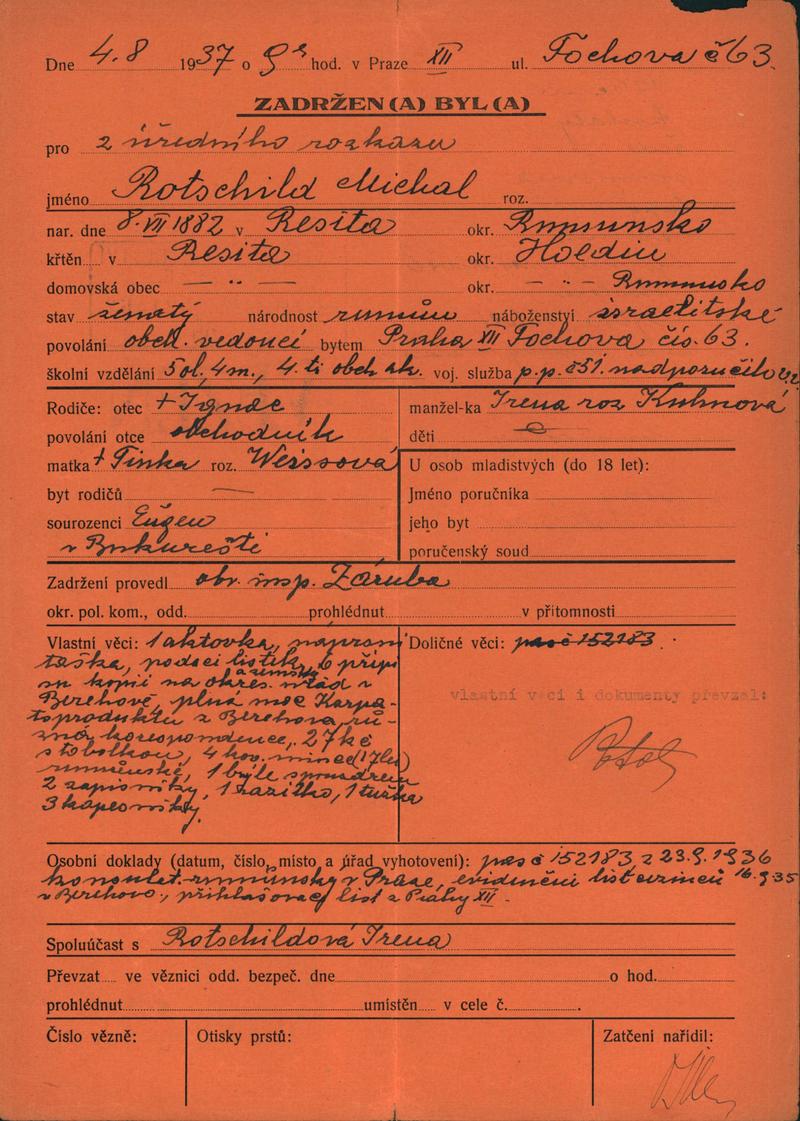 Dne 4.8 1937 o 9 hod. v Praze XII ul. Fochova č 63.
ZADRŽEN(A) BYL(A)
pro z úředního rozkazu
jméno Rotschild Michal roz.
nar. dne 8.VII 1882 v Resita okr. Rumunsko
křtěn v Resita okr. Hoedin
domovská obec — " — okr. — " — Rumunsko
stav ženatý národnost rumun náboženství israelitské
povolání obch. vedoucí bytem Praha XII Fochova čís. 63.
školní vzdělání 5 ob, 4 m., 4. tř obch ak. voj. služba p.p. 851. nadporučík
Rodiče: otec + Ignac
manžel-ka Irena roz Kuhnová
povolání otce obchodník
děti —
matka + Tinka roz. Weissová
U osob mladistvých (do 18 let):
byt rodičů —
Jméno poručníka
sourozenci Eugen
jeho byt
v Bukurešti
poručenský soud
Zadržení provedl obv. insp. Záruba
okr. pol. kom., odd. prohlédnut v přítomnosti
Vlastní věci: 1 aktovka,
Doličné věci: pas č 152183.
taška, podací lístek, 6 příp
kopií na okres. úřad v
Berehově, plná moc Karpa-
vlastní věci i dokumenty převzal:
toproduktu z Berehova, rů-
zná korespondence, 27 kč
s tobolkou, 4 kov. mince (17 lei)
rumunské, 1 brýle s pouzdrem
2 zápisníky, 1 razítko, 1 tužka
3 kapesníky.
Osobní doklady (datum, číslo, místo a úřad vyhotovení): pas č 152183 z 23.9.1936
konsulát. rumunský v Praze, evidenční list cizinců 16.9.35
v Berehovo, přihlašovací list z Prahy XII.
Spoluúčast s Rotschildová Irena
Převzat ve věznici odd. bezpeč. dne o hod.
prohlédnut umístěn v cele č.
Číslo vězně:
Otisky prstů:
Zatčení nařídil: